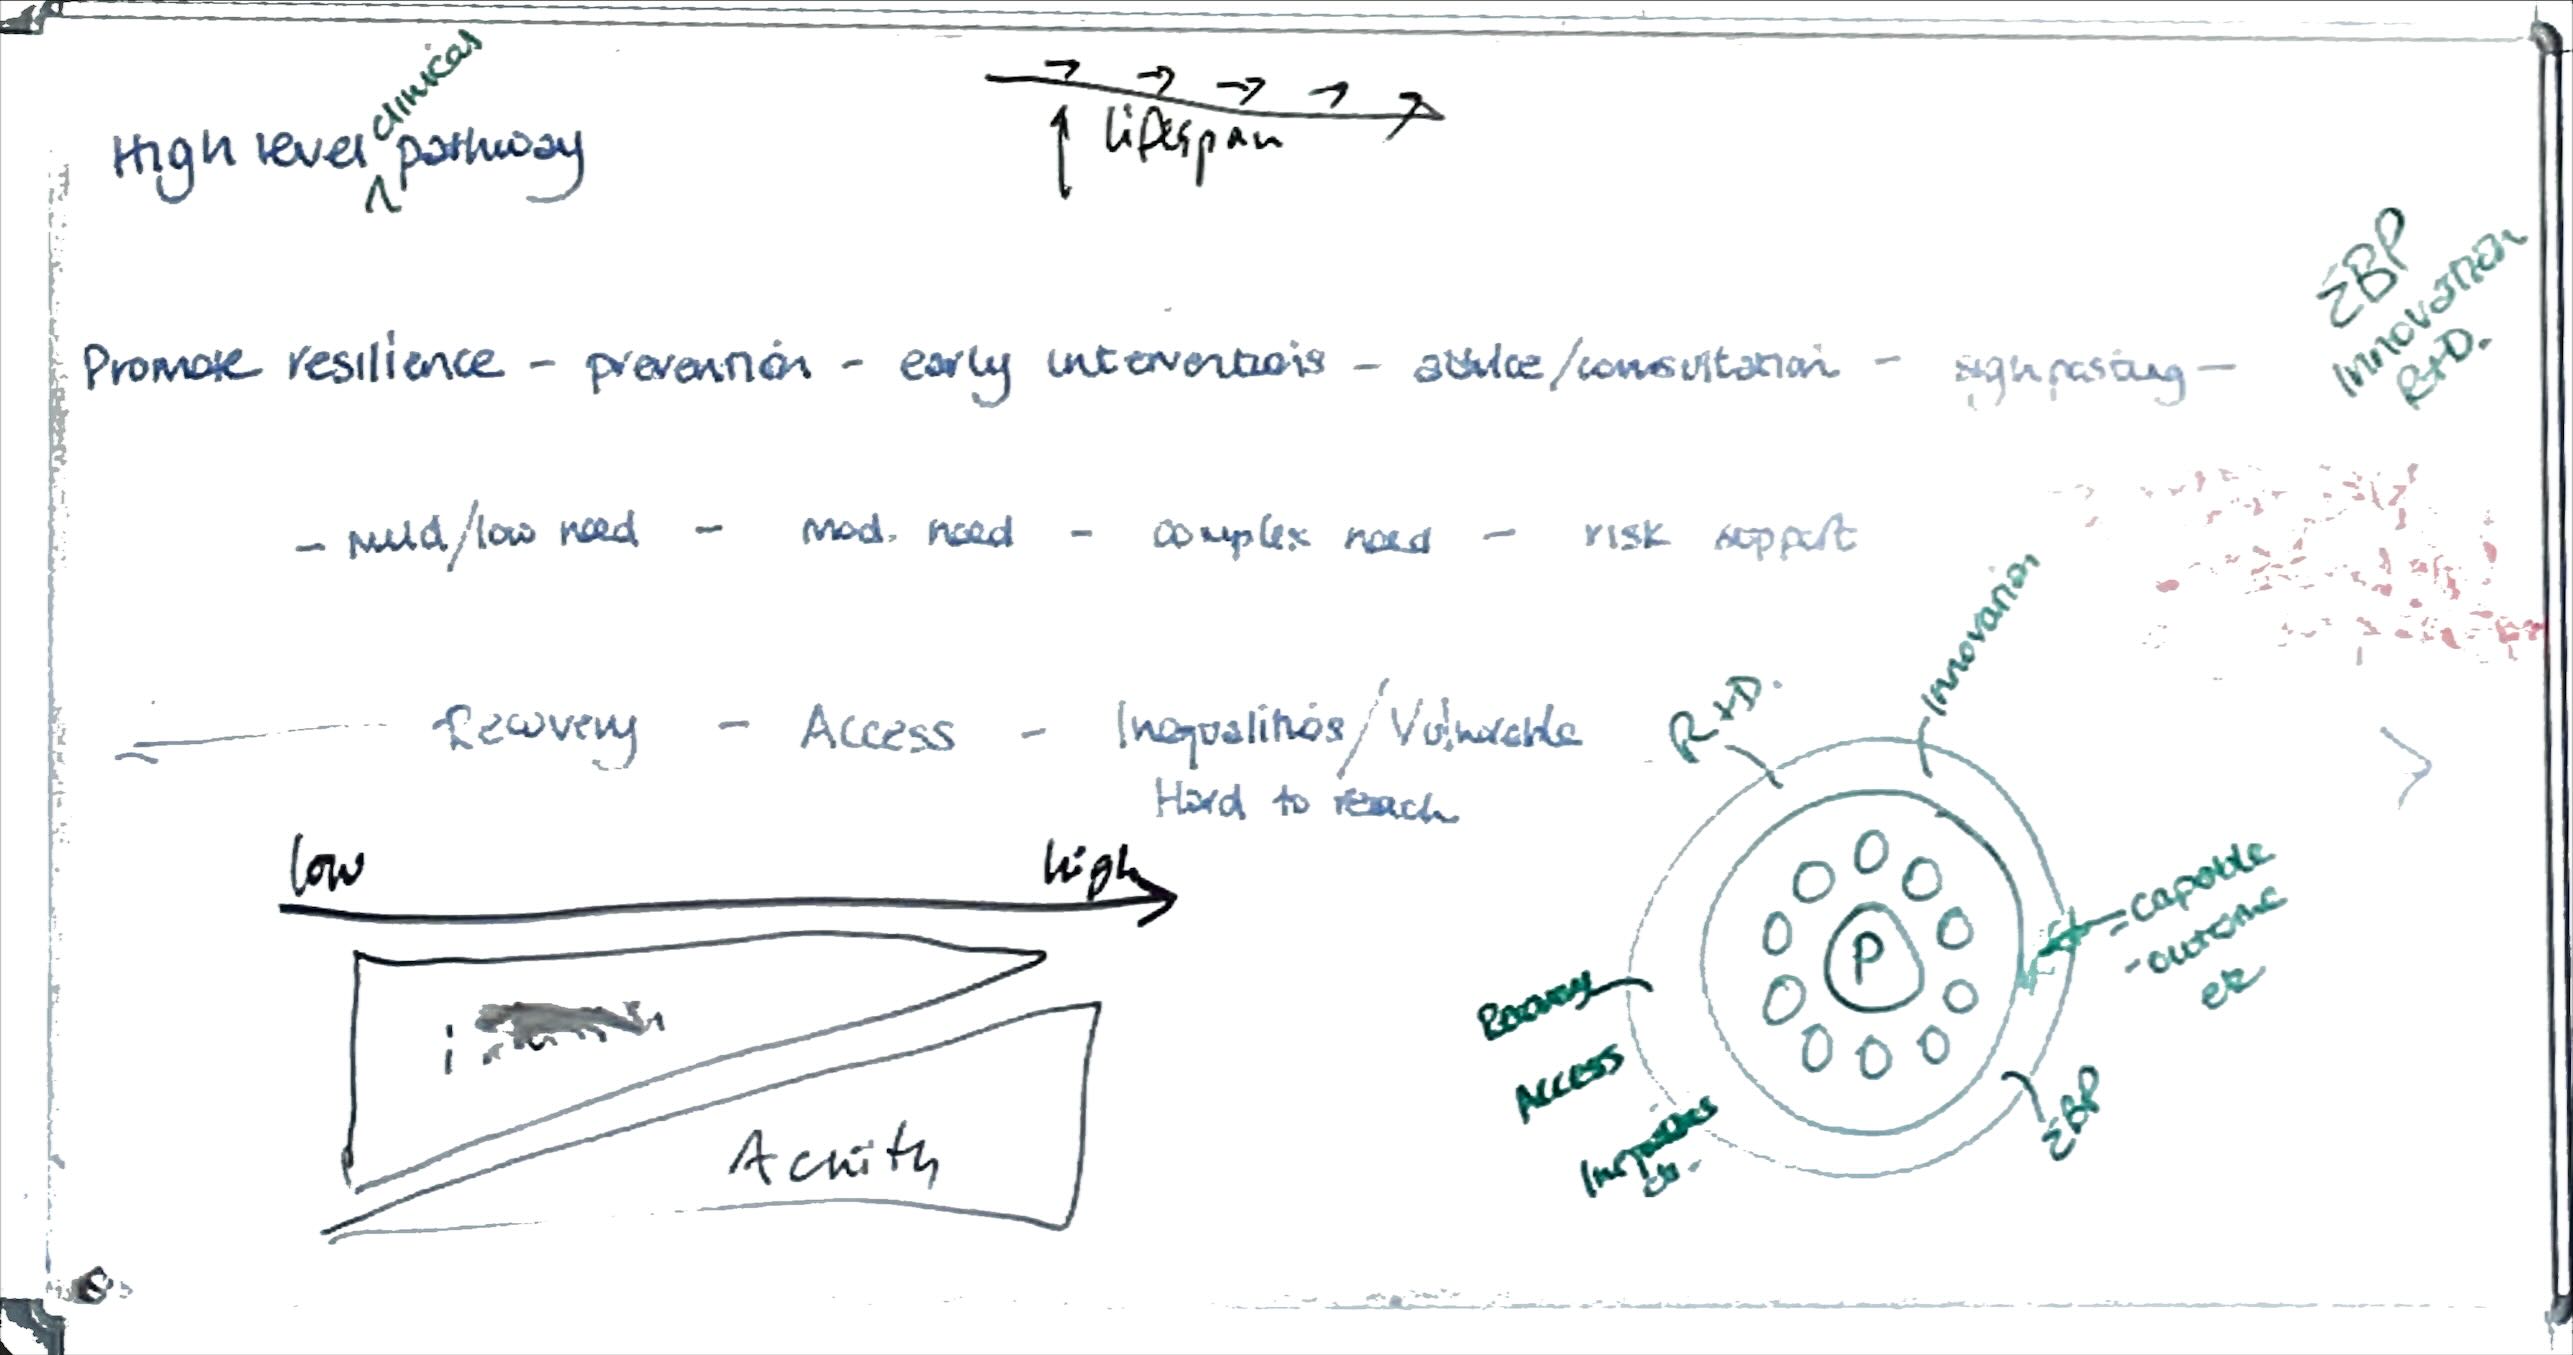 High level clinical pathway
lifespan
EBP
Innovation
R+D.
Promote resilience - prevention - early interventions - advice/consultation - signposting -
- mild/low need - mod. need - complex need - risk support
Recovery - Access - Inequalities/Vulnerable
Hard to reach
low high
i
Acuity
R+D.
Innovation
P
- capable
- outcome
etc
EBP
Recovery
Access
Inequalities
etc.